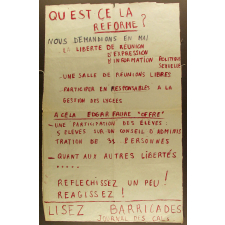 QU EST CE LA
REFORME ?
NOUS DEMANDIONS EN MAI
LA LIBERTE DE REUNION
D'EXPRESSION
D'INFORMATION POLITIQUE
SEXUELLE
_UNE SALLE DE REUNIONS LIBRES
PARTICIPER EN RESPONSABLES A LA
GESTION DES LYCEES
A CELA EDGAR FAURE "OFFRE"
-UNE PARTICIPATION DES ELEVES :
5 ELEVES SUR UN CONSEIL D ADMINIS
TRATION DE 31 PERSONNES
_QUANT AUX AUTRES LIBERTÉS
.....
REFLECHISSEZ UN PEU !
REAGISSEZ !
LISEZ BARRICADES
JOURNAL DES CALS